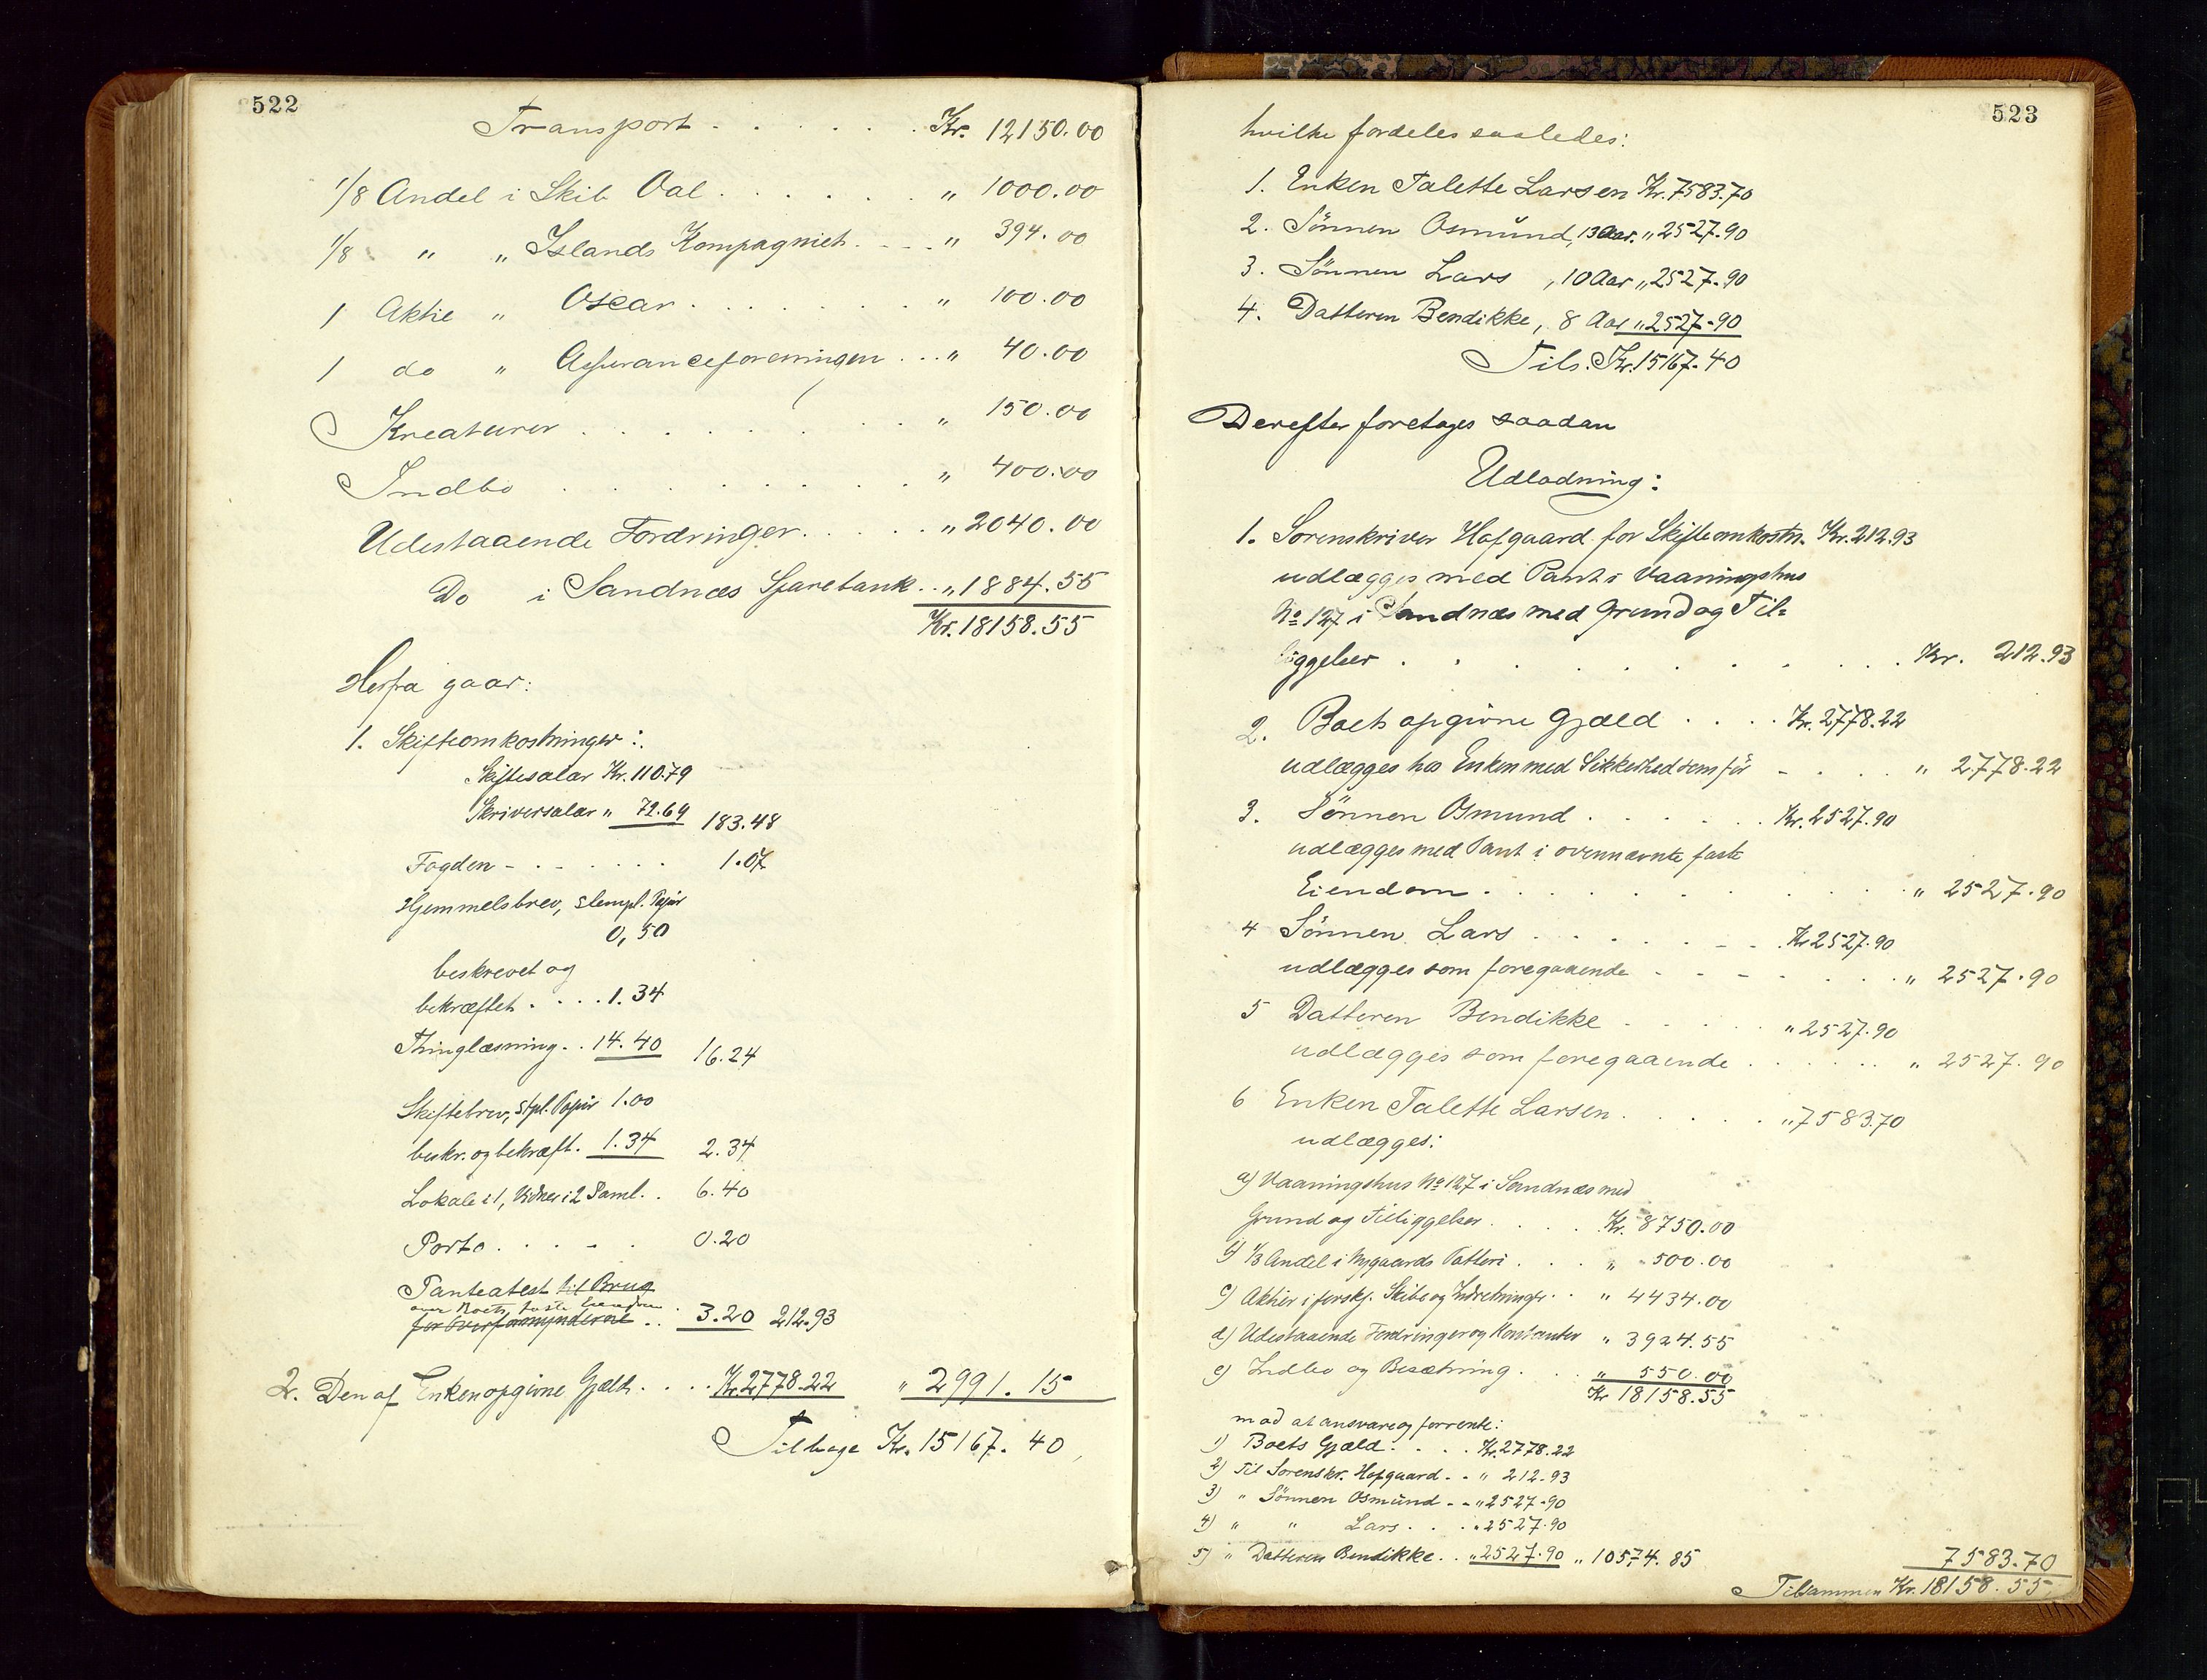 522
Transport . . . . . . Kr. 12150.00
1/8 Andel i Skib Val . . . . . . " 1000.00
1/8 " " Islands Kompagniet . . . " 394.00
1 Aktie " Oscar . . . . . . " 100.00
1 do " Assuranceforeningen . . . " 40.00
Kreaturer . . . . . . " 150.00
Indbo . . . . . . " 400.00
Udestaaende Fordringer . . . . " 2040.00
Do i Sandnæs Sparebank . . " 1884.55
Kr. 18158.55
Herfra gaar:
1. Skifteomkostninger:
Skiftesalar Kr. 110.79
Skriversalar " 72.69 183.48
Fogden - . . . . . 1.07
Hjemmelsbrev, stempl. Papir
0,50
beskrevet og
bekræftet . . . . 1.34
Thinglæsning . . 14.40 16.24
Skiftebrev, stpl. Papir 1.00
beskr. og bekræft. 1.34 2.34
Lokale i 1, Vidner i 2 Saml. . 6.40
Porto . . . . 0.20
Panteatest til Brug
over Boets faste Eiendom
for Overformynderne . . 3.20 212.93
2. Den af Enken opgivne Gjæld . . . . Kr. 2778.22 " 2991.15
Tilbage Kr. 15167.40
523
hvilke fordeles saaledes:
1. Enken Talette Larsen Kr. 7583.70
2. Sönnen Osmund, 13 Aar. " 2527.90
3. Sönnen Lars , 10 Aar " 2527.90
4. Datteren Bendikke, 8 Aar " 2527.90
Tils. Kr. 15167.40
Derefter foretages saadan
Udlodning:
1. Sorenskriver Hofgaard for Skifteomkostn. Kr. 212.93
udlægges med Pant i Vaaningshus
No 127 i Sandnæs med Grund og Til=
liggelser . . . . . . . . Kr. 212.93
2. Boets opgivne Gjæld . . . . Kr. 2778.22
udlægges hos Enken med Sikkerhed som för - . . . " 2778.22
3. Sönnen Osmund . . . . . . Kr. 2527.90
udlægges med Pant i ovennævnte faste
Eiendom . . . . . . . . " 2527.90
4 Sönnen Lars . . . . . . Kr 2527.90
udlægges som foregaaende - . - - . . . . " 2527.90
5 Datteren Bendikke . . . . . " 2527.90
udlægges som foregaaende . . . . . " 2527.90
6 Enken Talette Larsen . . . . . " 7583.70
udlægges:
a) Vaaningshus No 127 i Sandnæs med
Grund og Tilliggelser . . . . Kr. 8750.00
b) 1/3 Andel i Nygaards Potteri . . . " 500.00
c) Aktier i forskj. Skibe og Indretninger . . " 4434.00
d) Udestaaende Fordringer og Kontanter " 3924.55
e) Indbo og Besætning . . . " 550.00
Kr 18158.55
mod at ansvare og forrente:
1) Boets Gjæld . . . . Kr. 2778.22
2) Til Sorenskr. Hofgaard . . " 212.93
3) " Sönnen Osmund . . " 2527.90
4) " " Lars . . . " 2527.90
5) " Datteren Bendikke . . " 2527.90 " 10574.85 7583.70
Tilsammen Kr. 18158.55